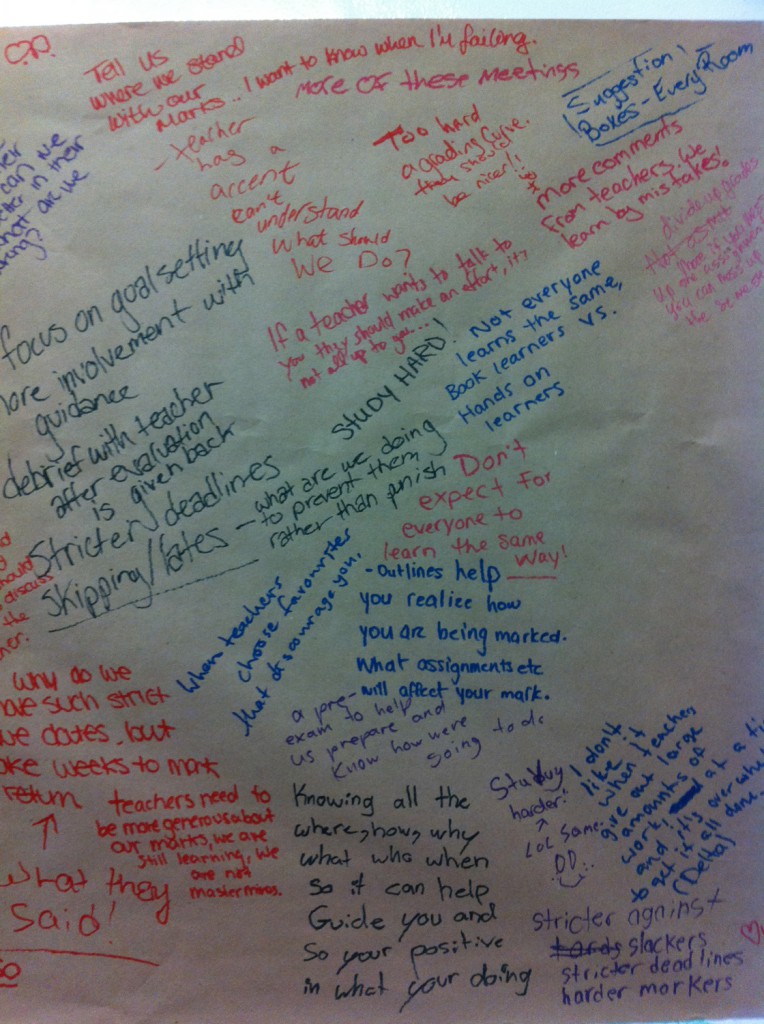 Tell us
where we stand
with our
marks.. I want to know when I'm failing.
More of these meetings
Suggestion!
Boxes - Every Room
- teacher
has a
accent
can't
understand
what should
we Do?
Too hard
a grading curve.
they should
be nicer!!
more comments
from teachers, we
learn by mistakes!
can we
in their
are we
divide up grades
up one assignment
you can mess up
If a teacher wants to talk to
you they should make an effort, it's
not all up to you...
focus on goal setting
ore involvement with
guidance
debrief with teacher
after evaluation
is given back
STUDY HARD!
Not everyone
learns the same,
Book learners vs.
Hands on
learners
Stricter deadlines
Skipping/lates - what are we doing
to prevent them
rather than punish
Don't
expect for
everyone to
learn the same
way!
discuss
the
When teachers
choose favourites
that discourage you.
- Outlines help
you realize how
you are being marked.
What assignments etc
will affect your mark.
why do we
ave such strict
ue dates, but
ake weeks to mark
return
↑
What they
said!
a pre-
exam to help
us prepare and
know how were
going to do
teachers need to
be more generous about
our marks, we are
still learning, we
are not
masterminds.
Knowing all the
where, how, why
what who when
so it can help
Guide you and
So your positive
in what your doing
Study
harder!
LOL same..
I don't
like it
when teachers
give out large
amannts of
work at a ti
and it's overwhe
to get it all done.
(Delta)
stricter agninst
slackers
stricter deadlines
harder markers